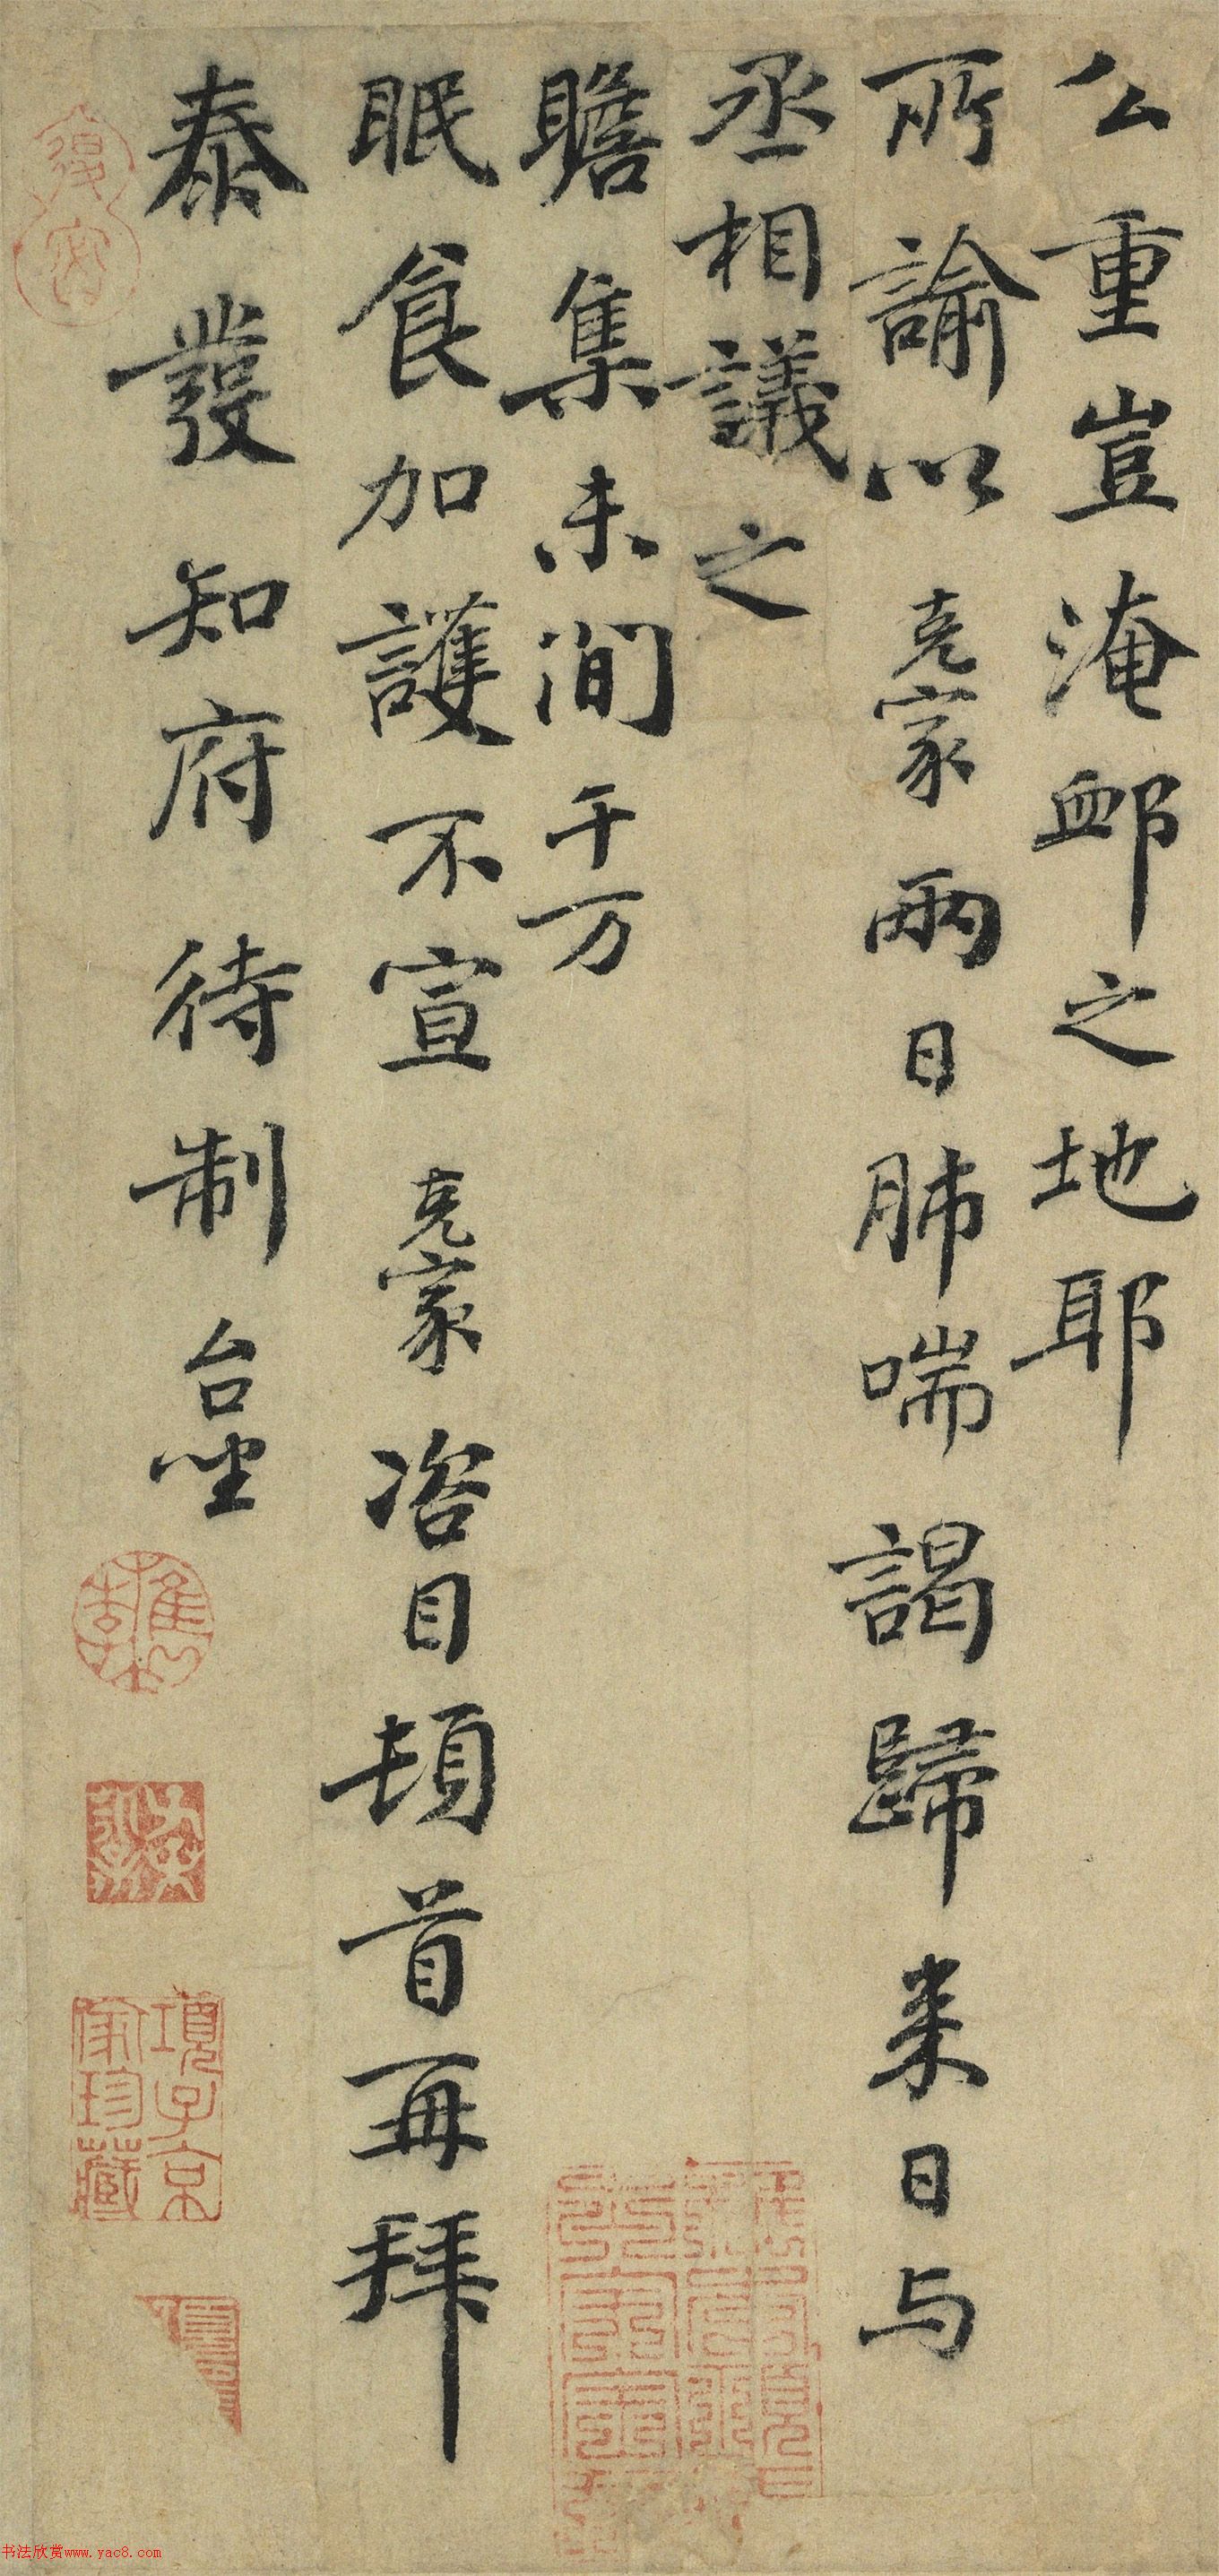 公重豈淹卹之地耶
所諭以克家兩日肺喘謁歸来日与
丞相議之
瞻集未間千万
眠食加護不宣克家咨目頓首再拜
泰發知府待制台坐
項子京家珍藏
书法欣赏www.yac8.com